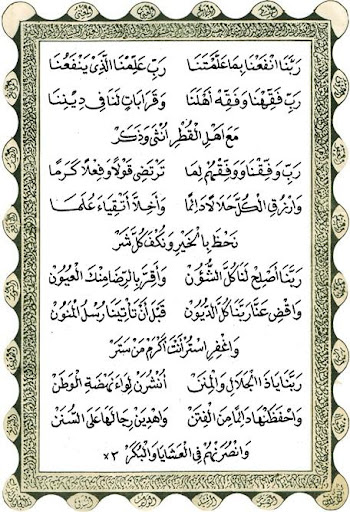 رَبَّنَا انْفَعْنَا بِمَا عَلَّمْتَنَا رَبِّ عَلِّمْنَا الَّذِيْ يَنْفَعُنَا
رَبِّ فَقِّهْنَا وَفَقِّهْ أَهْلَنَا وَقَرَابَاتٍ لَنَا فِي دِيْنِنَا
مَعْ أَهْلِ الْقُطْرِ أُنْثَى وَذَكَرْ
رَبِّ وَفِّقْنَا وَوَفِّقْهُمْ لِمَا تَرْتَضِي قَوْلًا وَفِعْلًا كَرَمًا
وَارْزُقِ الْكُلَّ حَلَالًا دَائِمًا وَأَخِلَّا أَتْقِيَاءَ عُلَمَا
نَحْظَ بِالْخَيْرِ وَنُكْفَ كُلَّ شَرْ
رَبَّنَا أَصْلِحْ لَنَا كُلَّ الشُّؤُنْ وَأَقِرَّ بِالرِّضَا مِنْكَ الْعُيُوْنْ
وَاقْضِ عَنَّا رَبَّنَا كُلَّ الدُّيُوْنْ قَبْلَ أَنْ تَأْتِيَنَا رُسْلُ الْمَنُوْنْ
وَاغْفِرِ اسْتُرْ أَنْتَ أَكْرَمُ مَنْ سَتَرْ
رَبَّنَا يَاذَا الْجَلَالِ وَالْمِنَنْ أُنْشُرَنْ لِوَاءَ نَهْضَةِ الْوَطَنْ
وَاحْفَظَنْهَا دَائِمًا مِنَ الْفِتَنْ وَاهْدِيَنْ رِجَالَهَا عَلَى السُّنَنْ
وَانْصُرَنْهُمْ فِي الْعَشَايَا وَالْبُكَرْ ×٣